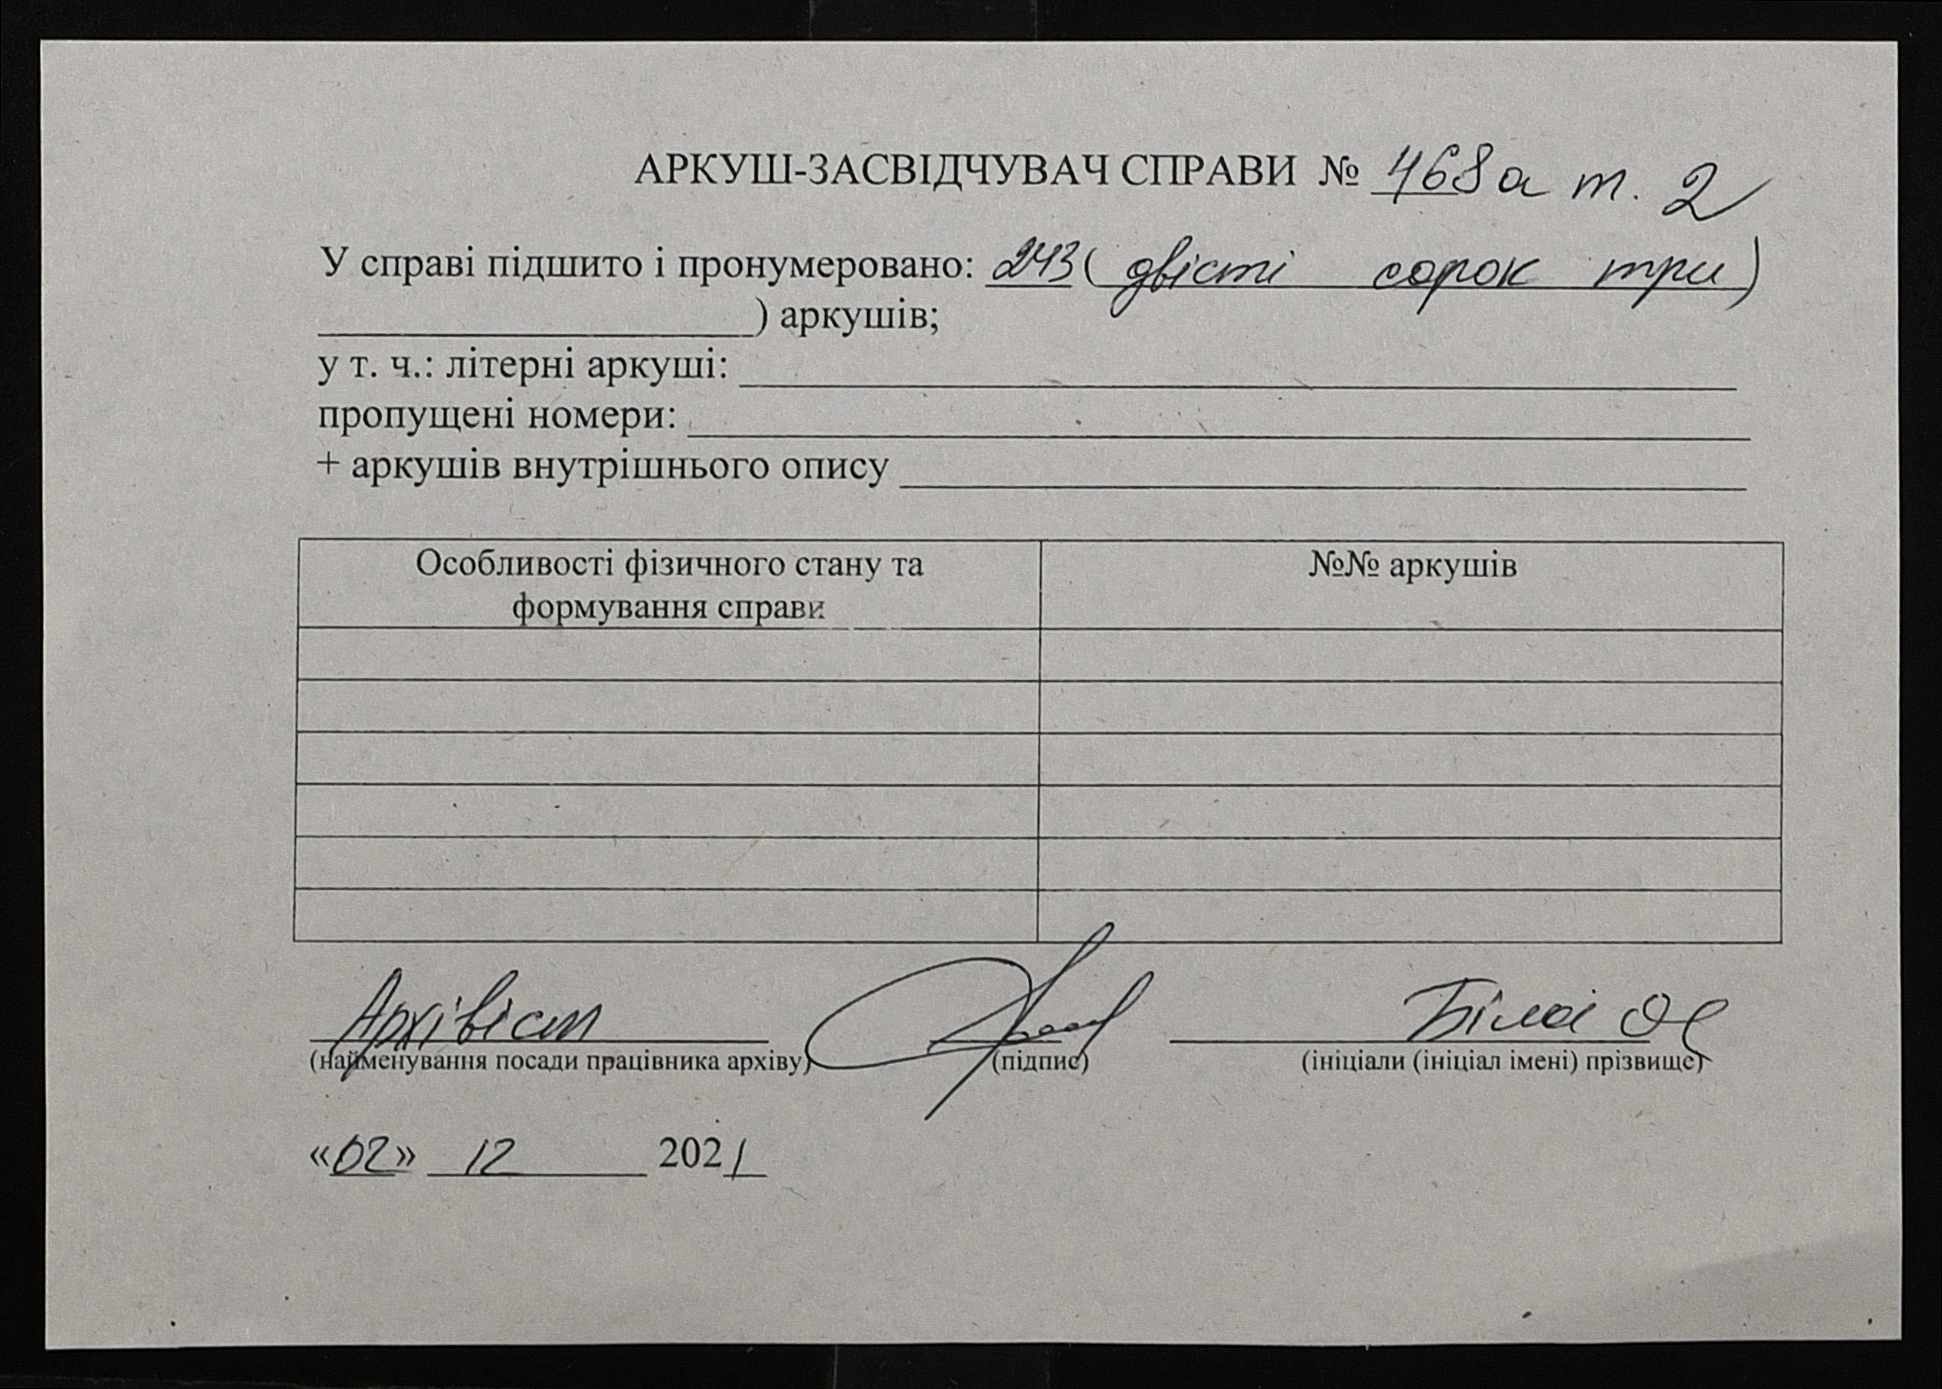 АРКУШ-ЗАСВІДЧУВАЧ СПРАВИ № 468а т. 2
У справі підшито і пронумеровано: 243 ( двісті сорок три )
____________________) аркушів;
у т. ч.: літерні аркуші: ____________________
пропущені номери: ____________________
+ аркушів внутрішнього опису ____________________
Особливості фізичного стану та
формування справи
№№ аркушів
Архівіст
(найменування посади працівника архіву)
(підпис)
(ініціали (ініціал імені) прізвище)
«02» 12 2021